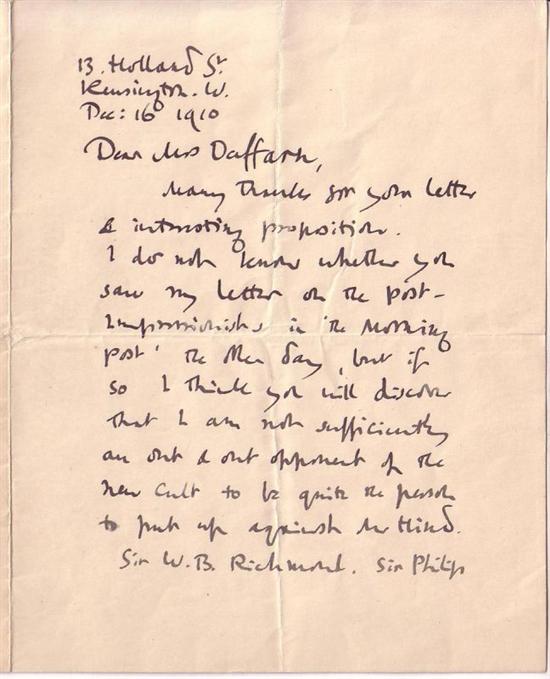 13. Holland St
Kensington. W.
Dec: 16 1910
Dear Mrs Daffarn,
Many thanks for your letter
& interesting proposition.
I do not know whether you
saw my letter on the Post-
Impressionists in 'the Morning
Post' the other day, but if
so I think you will discover
that I am not sufficiently
an out & out opponent of the
new cult to be quite the person
to put up against Mr Hind.
Sir W. B. Richmond. Sir Philip